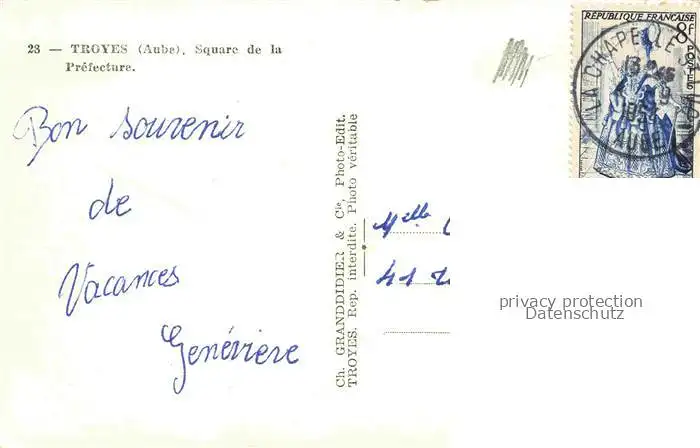 23 — TROYES (Aube). Square de la
Préfecture.
Bon souvenir
de
Vacances
Geneviève
Ch. GRANDDIDIER & Cie, Photo-Edit.
TROYES. Rep. interdite. Photo véritable
RÉPUBLIQUE FRANÇAISE
8F
POSTES
LA CHAPELLE ST
AUBE
Melle
41
privacy protection
Datenschutz